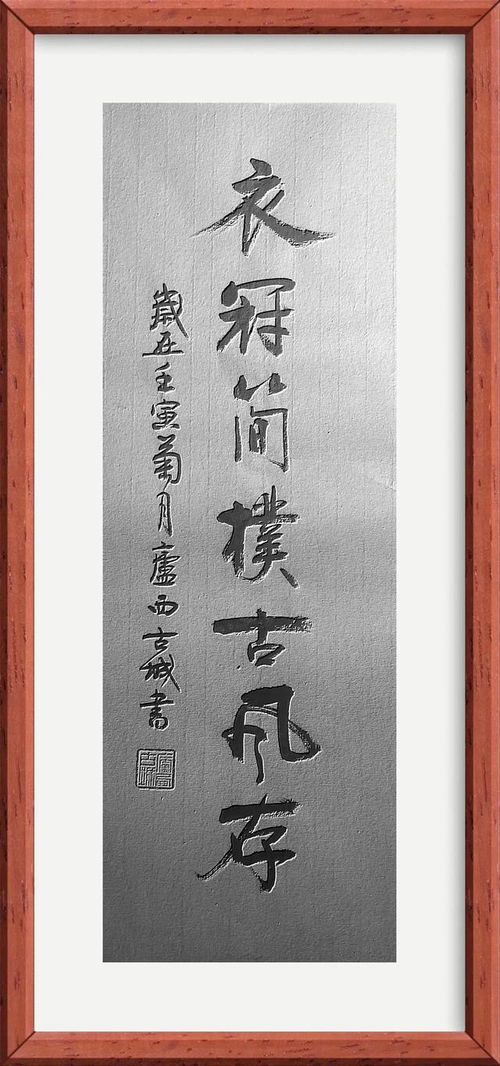 衣冠简樸古风存
歲在壬寅菊月廬西古城書